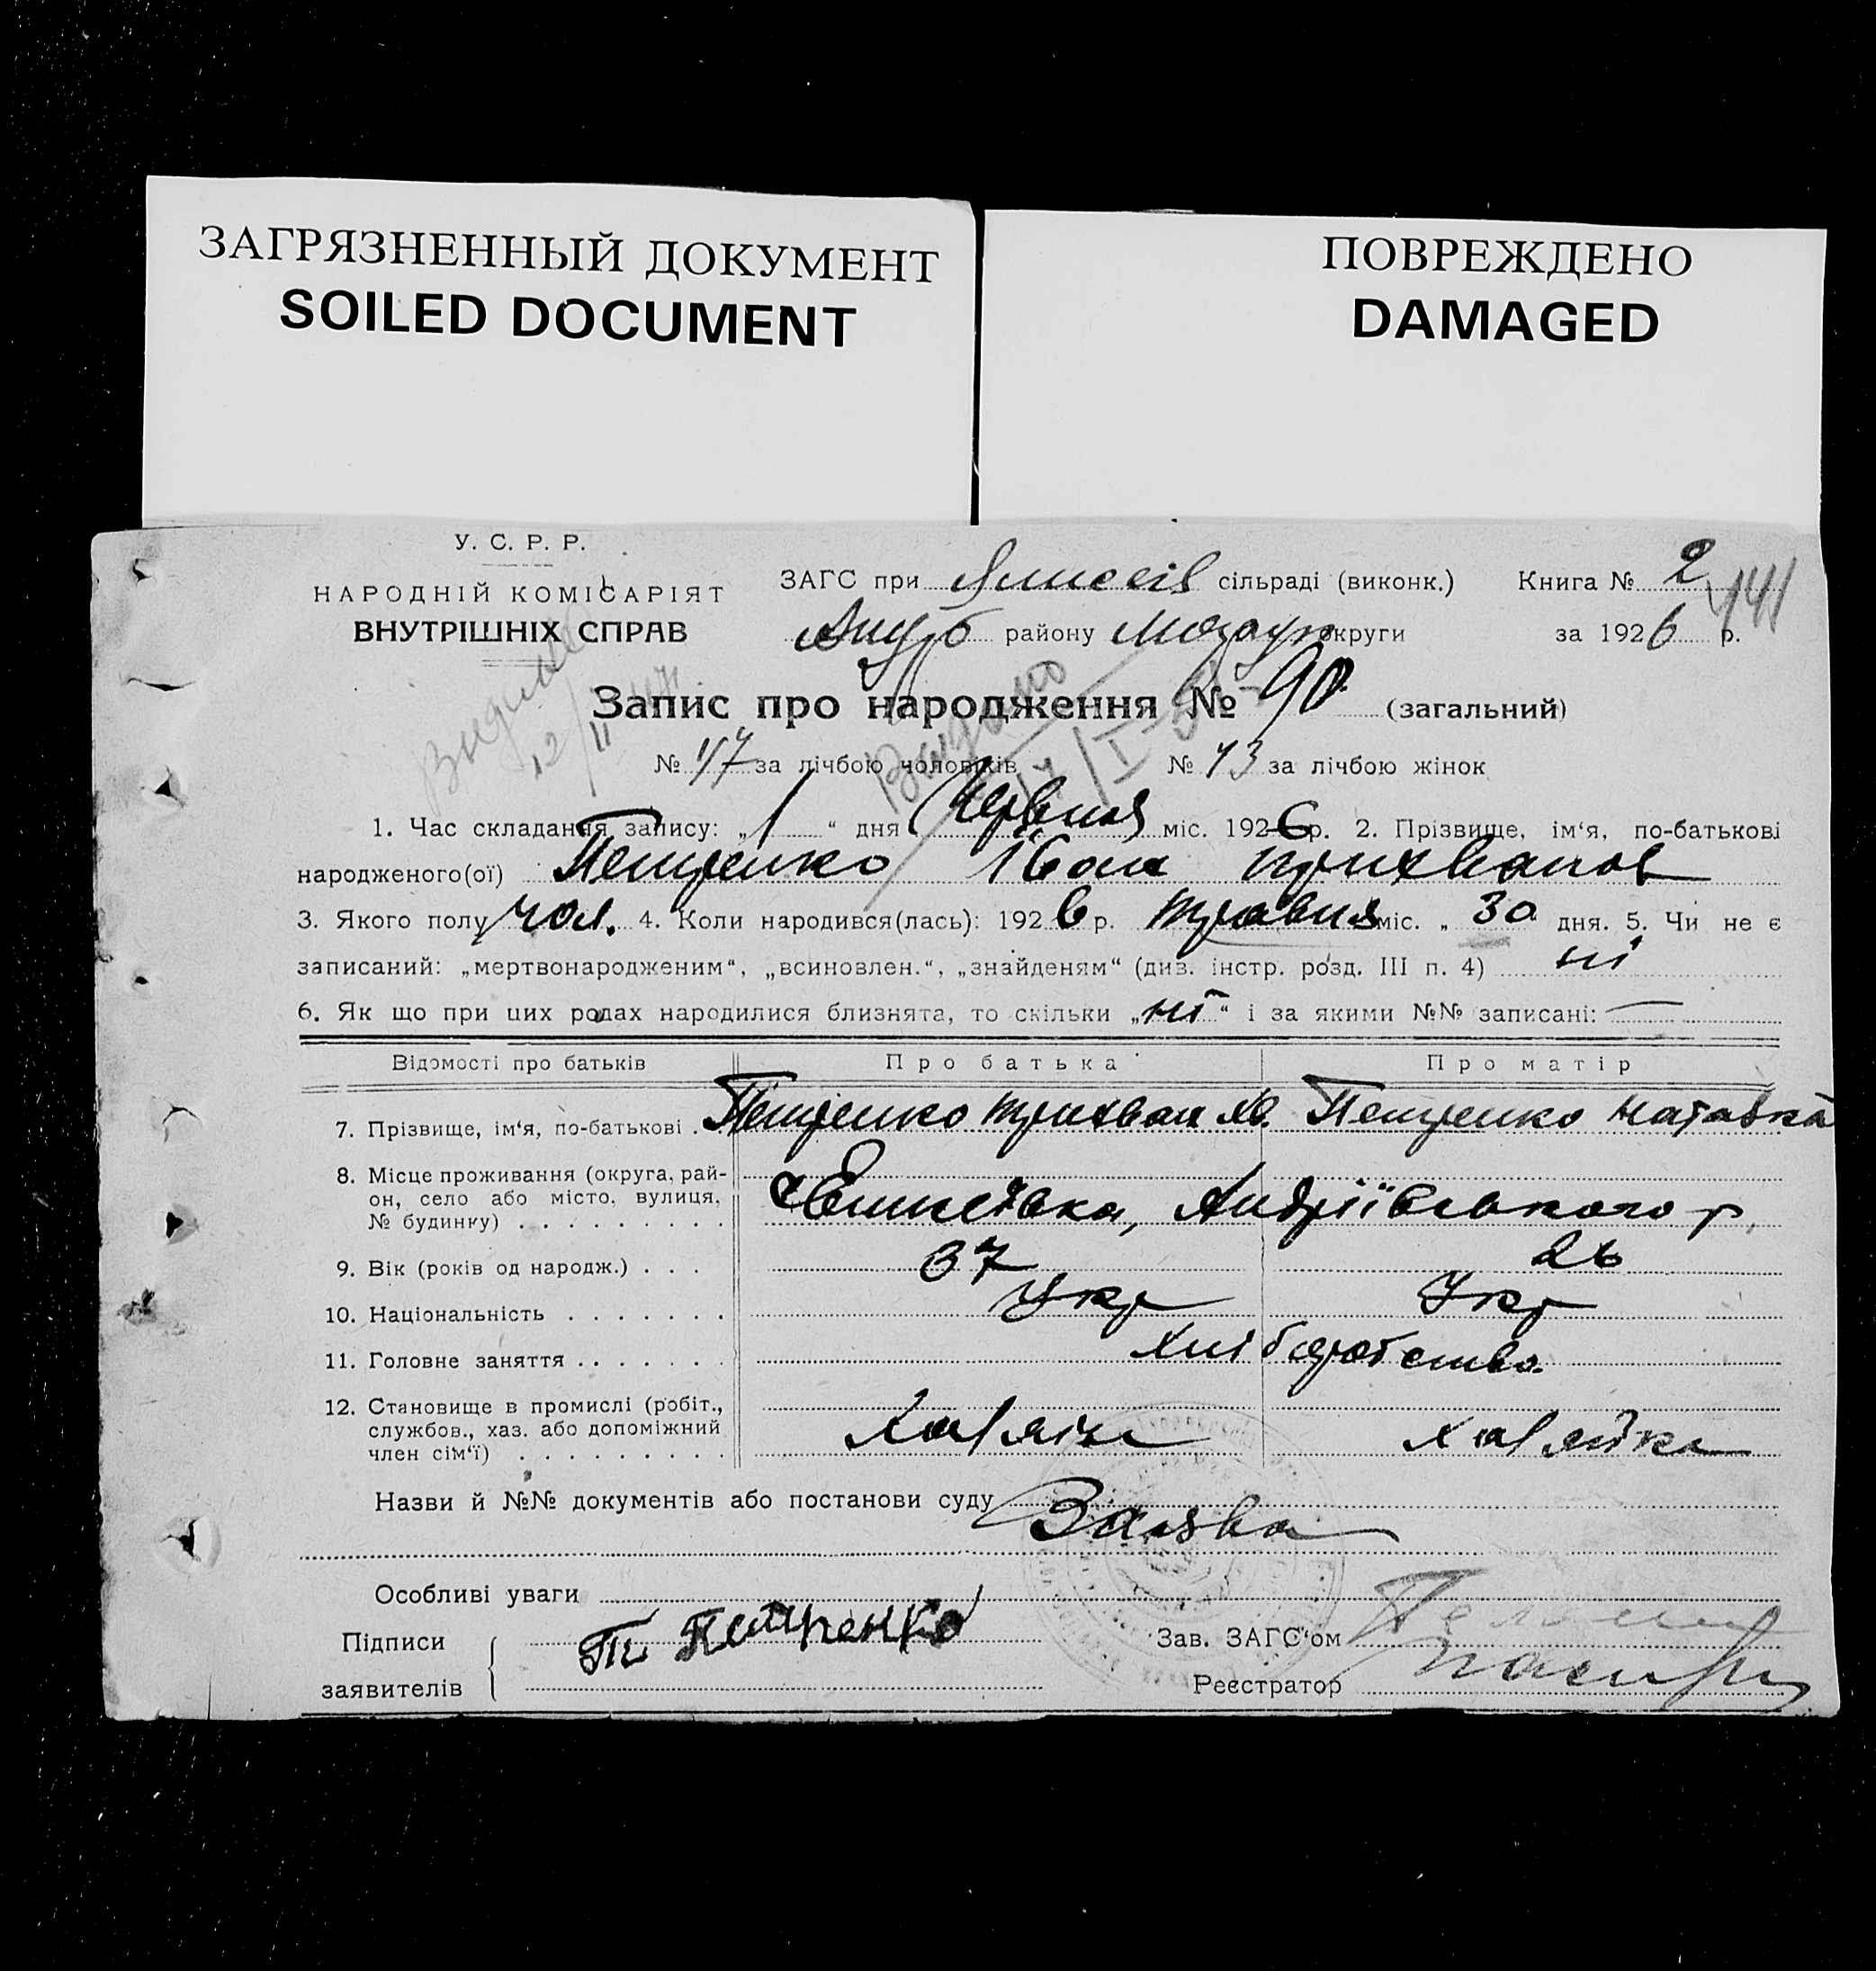 ЗАГРЯЗНЕННЫЙ ДОКУМЕНТ
SOILED DOCUMENT
ПОВРЕЖДЕНО
DAMAGED
У. С. Р. Р.
НАРОДНІЙ КОМІСАРІЯТ
ВНУТРІШНІХ СПРАВ
ЗАГС при сільраді (виконк.) Книга № 2
району округи за 1926 р.
141
Запис про народження № 90 (загальний)
№ 47 за лічбою чоловіків № 43 за лічбою жінок
1. Час складання запису: „1“ дня Червня міс. 1926 р. 2. Прізвище, ім‘я, по-батькові
народженого(ої) Петренко Іван Трихванов
3. Якого полу чол. 4. Коли народився(лась): 1926 р. Травня міс. „30 дня. 5. Чи не є
записаний: „мертвонародженим“, „всиновлен.“, „знайденям“ (див. інстр. розд. III п. 4) ні
6. Як що при цих родах народилися близнята, то скільки „ні“ і за якими №№ записані: —
Відомості про батьків Про батька Про матір
7. Прізвище, ім‘я, по-батькові . Петренко Трихван Петренко Наталка
8. Місце проживання (округа, рай-
он, село або місто, вулиця,
№ будинку) . . . . . . . . . Андріївського р.
9. Вік (років од народж.) . . . 37 26
10. Національність . . . . . . . Укр Укр
11. Головне заняття . . . . . . Хліборобство
12. Становище в промислі (робіт.,
службов., хаз. або допоміжний
член сім‘ї) . . . . . . . . . Хазяін хазяйка
Назви й №№ документів або постанови суду Заява
Особливі уваги
Підписи Т. Петренко Зав. ЗАГС‘ом
заявителів Реєстратор